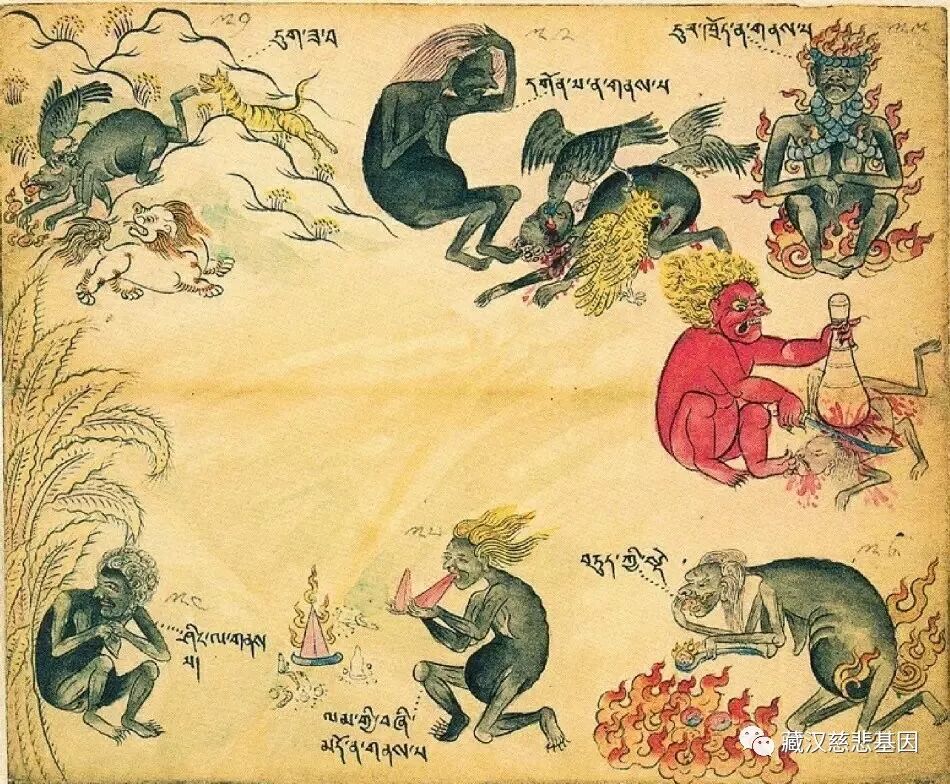 དུག་ཟ་བ
དགོན་པ་ན་གནས་པ
དུར་ཁྲོད་ན་གནས་པ
ཤིང་ལ་གནས
པ།
ལམ་གྱི་བཞི་
མདོ་ན་གནས་པ
བདུད་ཀྱི་སྡེ
藏汉慈悲基因